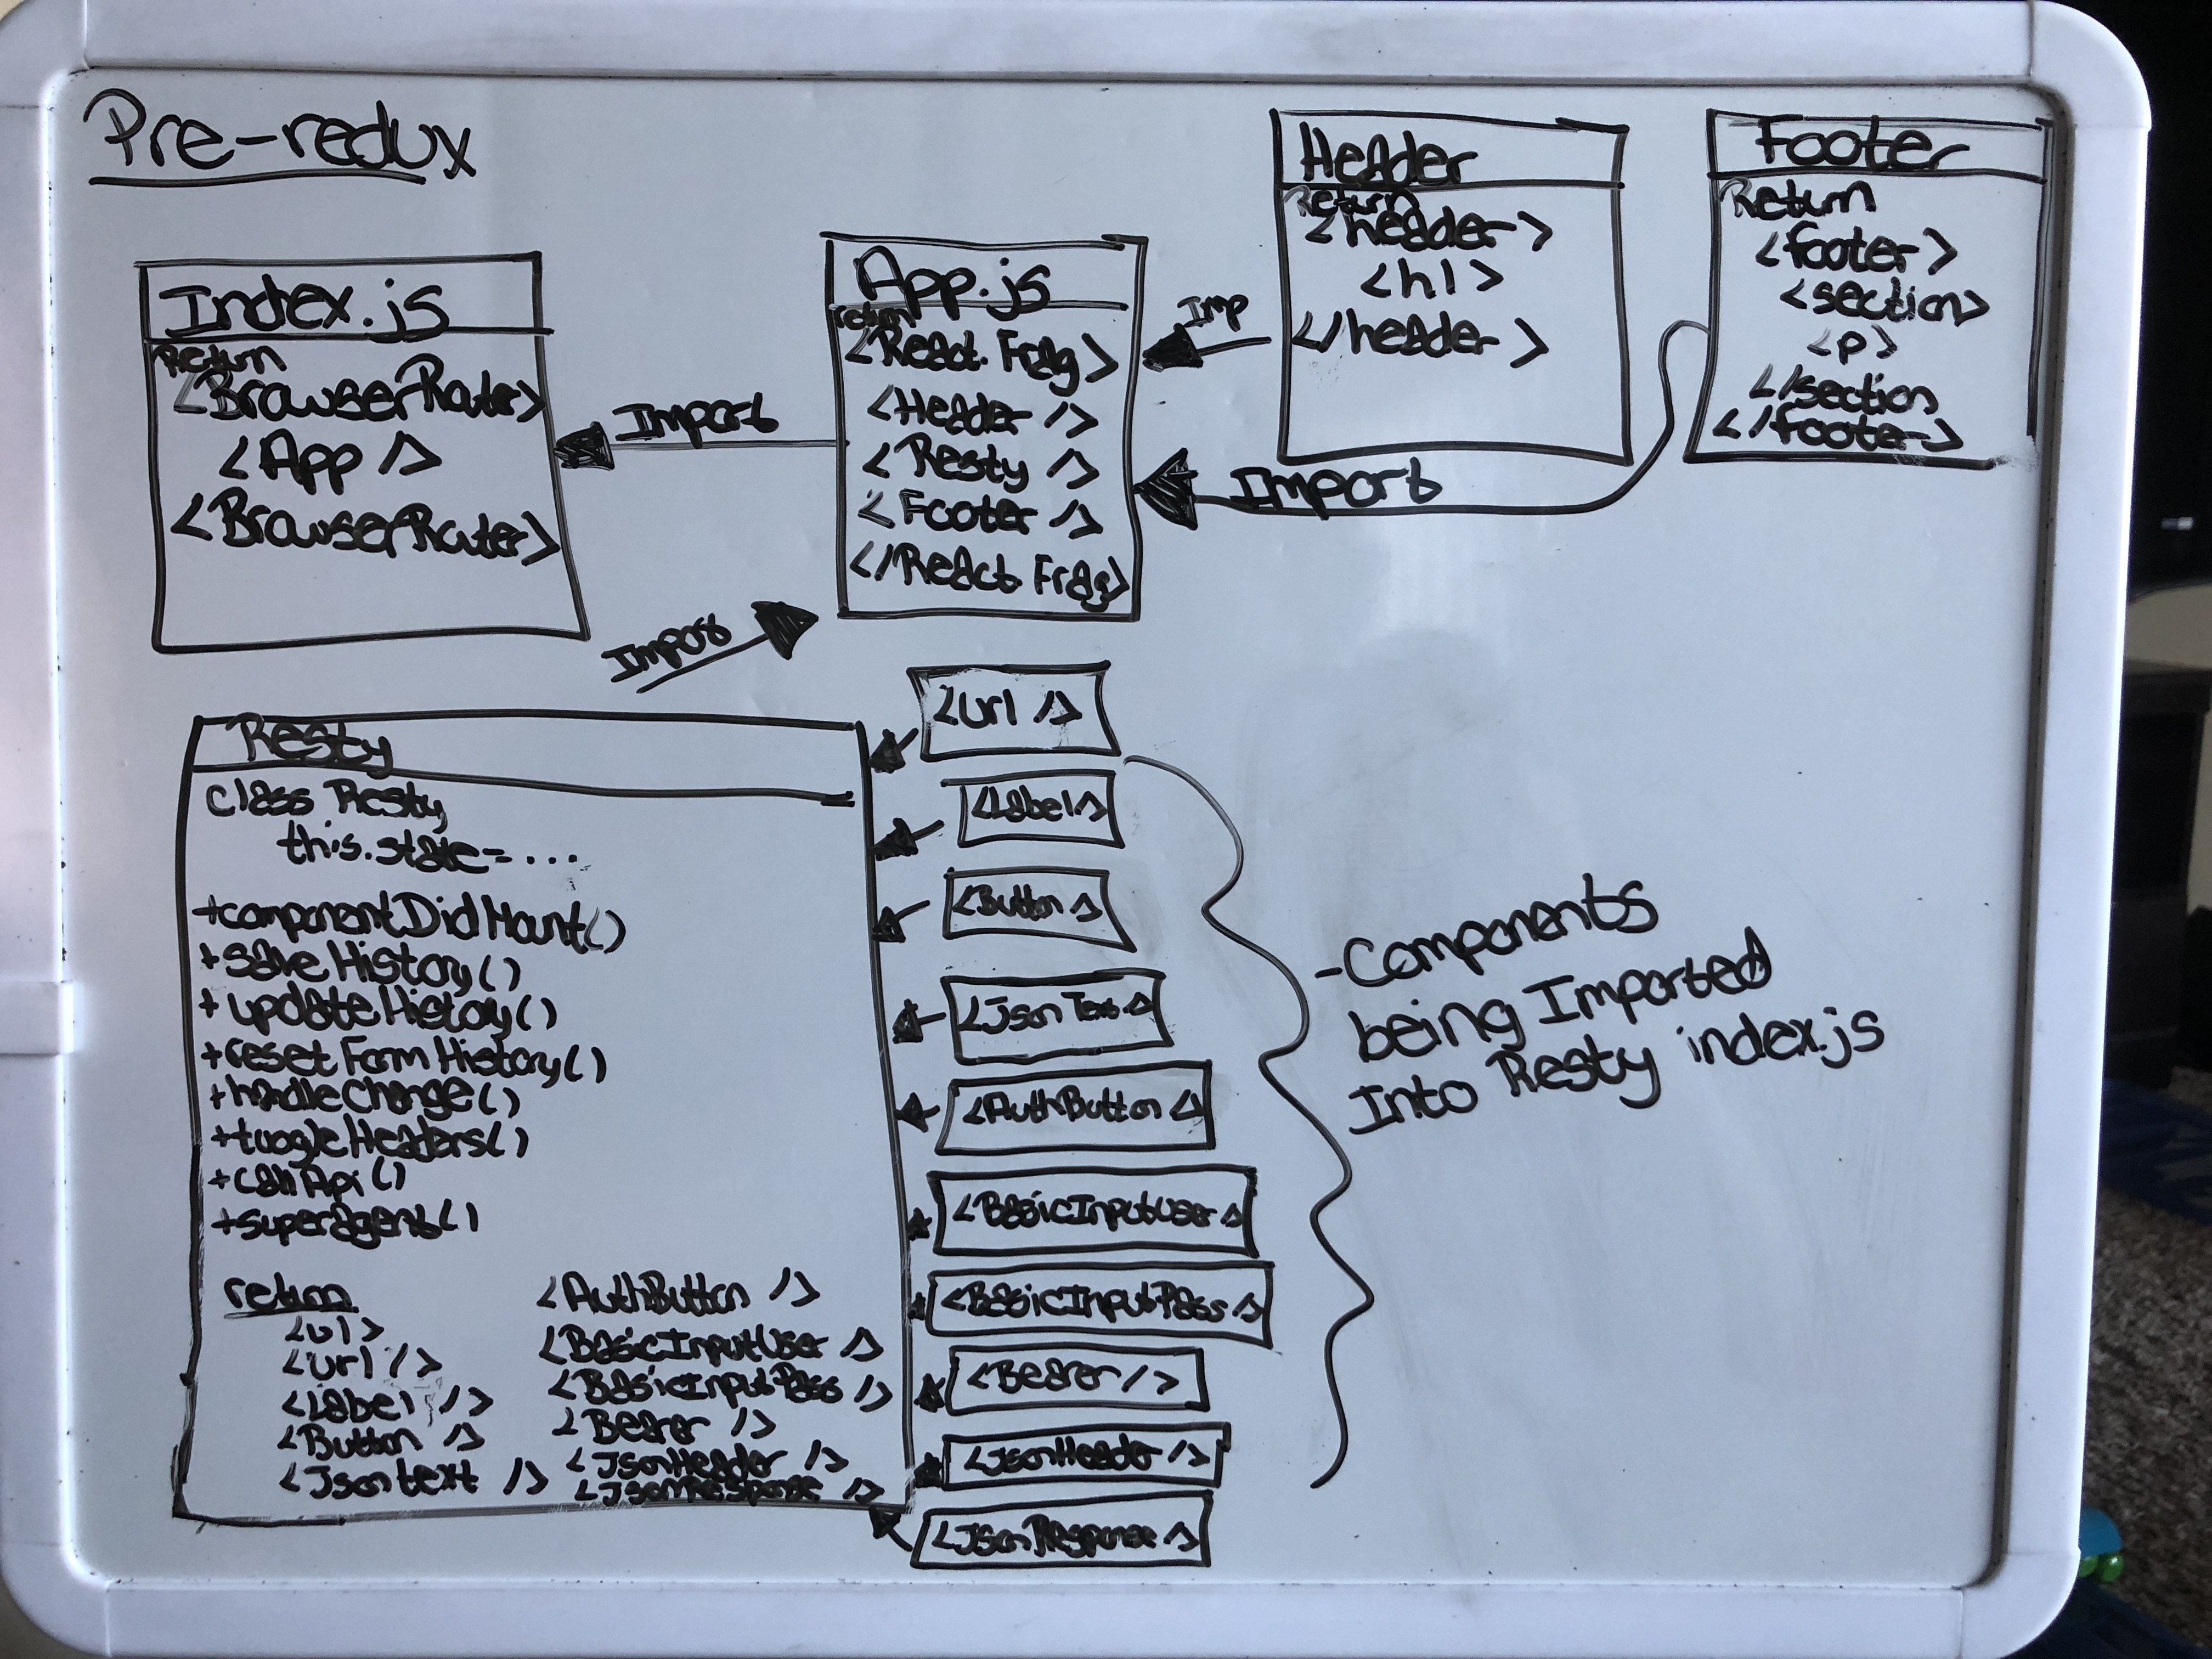 Pre-redux
Index.js
Return
<BrowserRouter>
<App />
<BrowserRouter>
Import
App.js
return
<React.Frag>
<Header />
<Resty />
<Footer />
</React.Frag>
Imp
Import
Header
Return
<header>
<h1>
</header>
Footer
Return
<footer>
<section>
<p>
</section
</footer>
Import
Resty
class Resty
this.state=...
+componentDidMount()
+saveHistory()
+updateHistory()
+resetFormHistory()
+handleChange()
+toogleHeaders()
+callApi()
+superagent()
return
<ul>
<url />
<Label />
<Button />
<Jsontext />
<AuthButton />
<BasicInputUser />
<BasicInputPass />
<Bearer />
<JsonHeader />
<JsonResponse />
<url />
<Label/>
<Button />
<JsonText />
<AuthButton />
<BasicInputUser />
<BasicInputPass />
<Bearer />
<JsonHeader />
<JsonResponse />
-Components
being Imported
Into Resty index.js